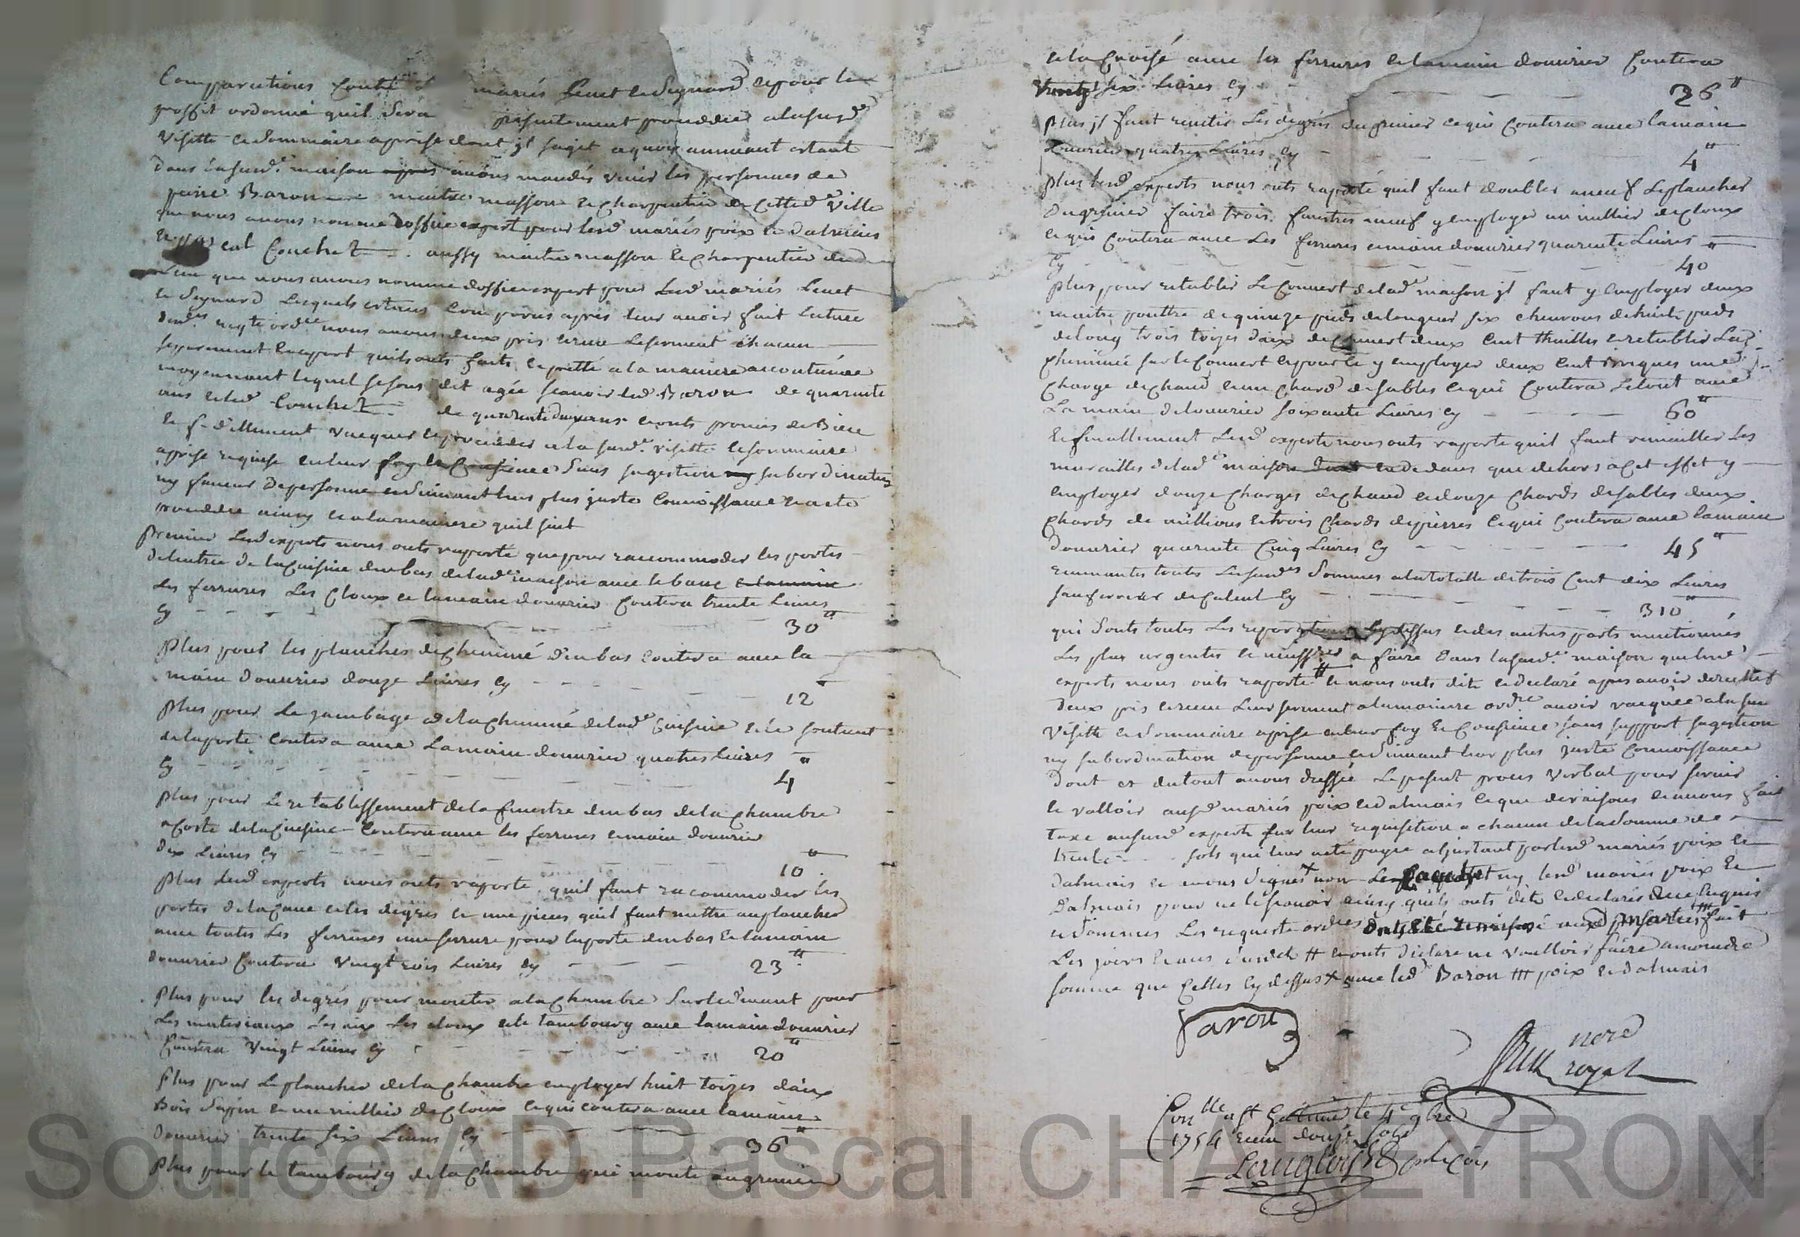 Comparutions Contre mariés Lenet et Seynard et pour le
proffit ordonné quil sera présentement proceddé alasusd.
Visitte et sommaire aprise dont jl sagit aquoy annuant estant
dans lasusd.e maison avons mandés venir les personnes de
pierre Baron maitre masson et charpentier de cetted.e Ville
que nous avons nommé doffice expert pour lesd. mariés poix et dalmais
et pascal Couchet aussy maitre masson et charpentier dud.
Lieu que nous avons nommé doffice expert pour Lesd mariés Lenet
et Seynard Lesquels estants comparus après leur avoir fait lecture
desd. req.te ord.ce nous avons deux pris et reçu Leserment chacun
separement Lesquels quils onts faits et pretté a la manière accoutumée
moyennant lequel se sont dit agée scavoir led Baron de quarante
ans et led Couchet de quarante ans et onts promis de Bien
et f. dellement vacquer et procedder a la susd.e visitte et sommaire
aprise requise en leur foy et Consience sans sugestion ny subordination
ny faveur de personne en suivant leur plus juste Connoissance et a ete
proceddé ainsy et a la maniere quil suit
premier Lesd experts nous onts raporté que pour raccommoder les portes
delentrée de la cuisine dembas de lad.e maison avec le banc
les ferrures Les Cloux et lamain douvrier Coutera trente Livres
Cy 30"
Plus pour les planches de cheminé dembas coutera avec la
main douvrier douze Livres Cy
12"
Plus pour Le jambage de la Cheminé de lad.e Cuisine et le soutient
delaporte Coutera avec Lamain douvrier quatres Livres
Cy 4"
Plus pour Le retablissement de la fenestre dembas de la chambre
a Coste de la Cuisine Coutera avec les ferrures et main douvrier
dix Livres Cy 10"
Plus Lesd experts nous onts raporté quil faut racommoder les
portes de la Cave et les degrés et une piece quil faut mettre au plancher
avec toutes Les ferrures une serrure pour laporte dembas et lamain
douvrier Coutera Vingt trois Livres Cy 23"
Plus pour les degrés pour monter a la Chambre sur le devant pour
Les materiaux Les aix Les cloux et le tambourg avec lamain douvrier
Coutera Vingt Livres Cy 20"
Plus pour Le plancher de la chambre employer huit toizes daix
Bois Sapin et un millier de Cloux ce qui coutera avec lamain
douvrier trente six Livres Cy 36"
Plus pour le tambourg de la Chambre qui monte au grenier
et la Croisé avec les ferrures et lamain douvrier Coutera
six Livres Cy 26"
Plus jl faut remettre Les degrés du grenier ce qui Coutera avec lamain
douvrier quatres Livres Cy 4"
Plus lesd experts nous onts raporté quil faut doubler aneuf Le plancher
du grenier faire trois fenestres neuf y employer un millier de cloux
ce qui Coutera avec Les ferrures et main douvrier quarente Livres
Cy 40"
Plus pour retablir Le Couvert de lad.e maison jl faut y employer deux
maitre pouttre de quinze pieds de longueur six chevrons de huit pieds
de long trois toizes daix de couvert deux Cent thuilles et retablir La
Cheminée sur le Couvert et pour ce y employer deux Cent Briques une
Charge de chaud et un Chard de sables ce qui Coutera Le tout avec
La main delouvrier soixante Livres Cy 60"
Et finallement Lesd experts nous onts raporté quil faut remailler Les
murailles de lad.e maison tant en dedans que dehors a Cet effet y
employer douze Charges de chaud et douze Chards de sables deux
Chards de millions et trois Chards de pierres ce qui Coutera avec lamain
douvrier quarente Cinq Livres Cy 45"
revenantes toutes Lessusd.es sommes a la totalle de trois Cent dix Livres
sauf erreur de Calcul Cy 310"
qui sonts toutes Les reparations Cy dessus et des autres parts mentionnés
Les plus urgentes et necess.res a faire dans lasusd.e maison que lesd
experts nous onts raporté # et nous onts dits et declaré apres avoir derechef
deux pris et reçu Leur serment a la maniere ord.re avoir vacquée a la sus
Visitte et Sommaire aprise en leur foy et Consience sans support sugestion
ny subordination de personne et suivant leur plus juste Connoissance
dont et du tout avons dressée Le present proces verbal pour servir
et valloir ausd. mariés poix et dalmais ce que de raison et avons fait
taxe aususd. experts sur leur requisition a chacun de la somme de
trente sols qui leur a eté payée a ljnstant par lesd mariés poix et
dalmais et avons signé non ny lesd mariés poix et
dalmais pour ne le scavoir ainsy quils onts dits et declarés de ce Enquis
et sommés Les requeste ord.ces fait
Les jours et ans susd. # et onts declaré ne Voulloir faire amoindre
somme que Celles Cy dessus x avec led. Baron ### poix et dalmais
Baron
nore
royal
Con.lle a St le 4e 9bre
1754 reçu douze sols
Langlois